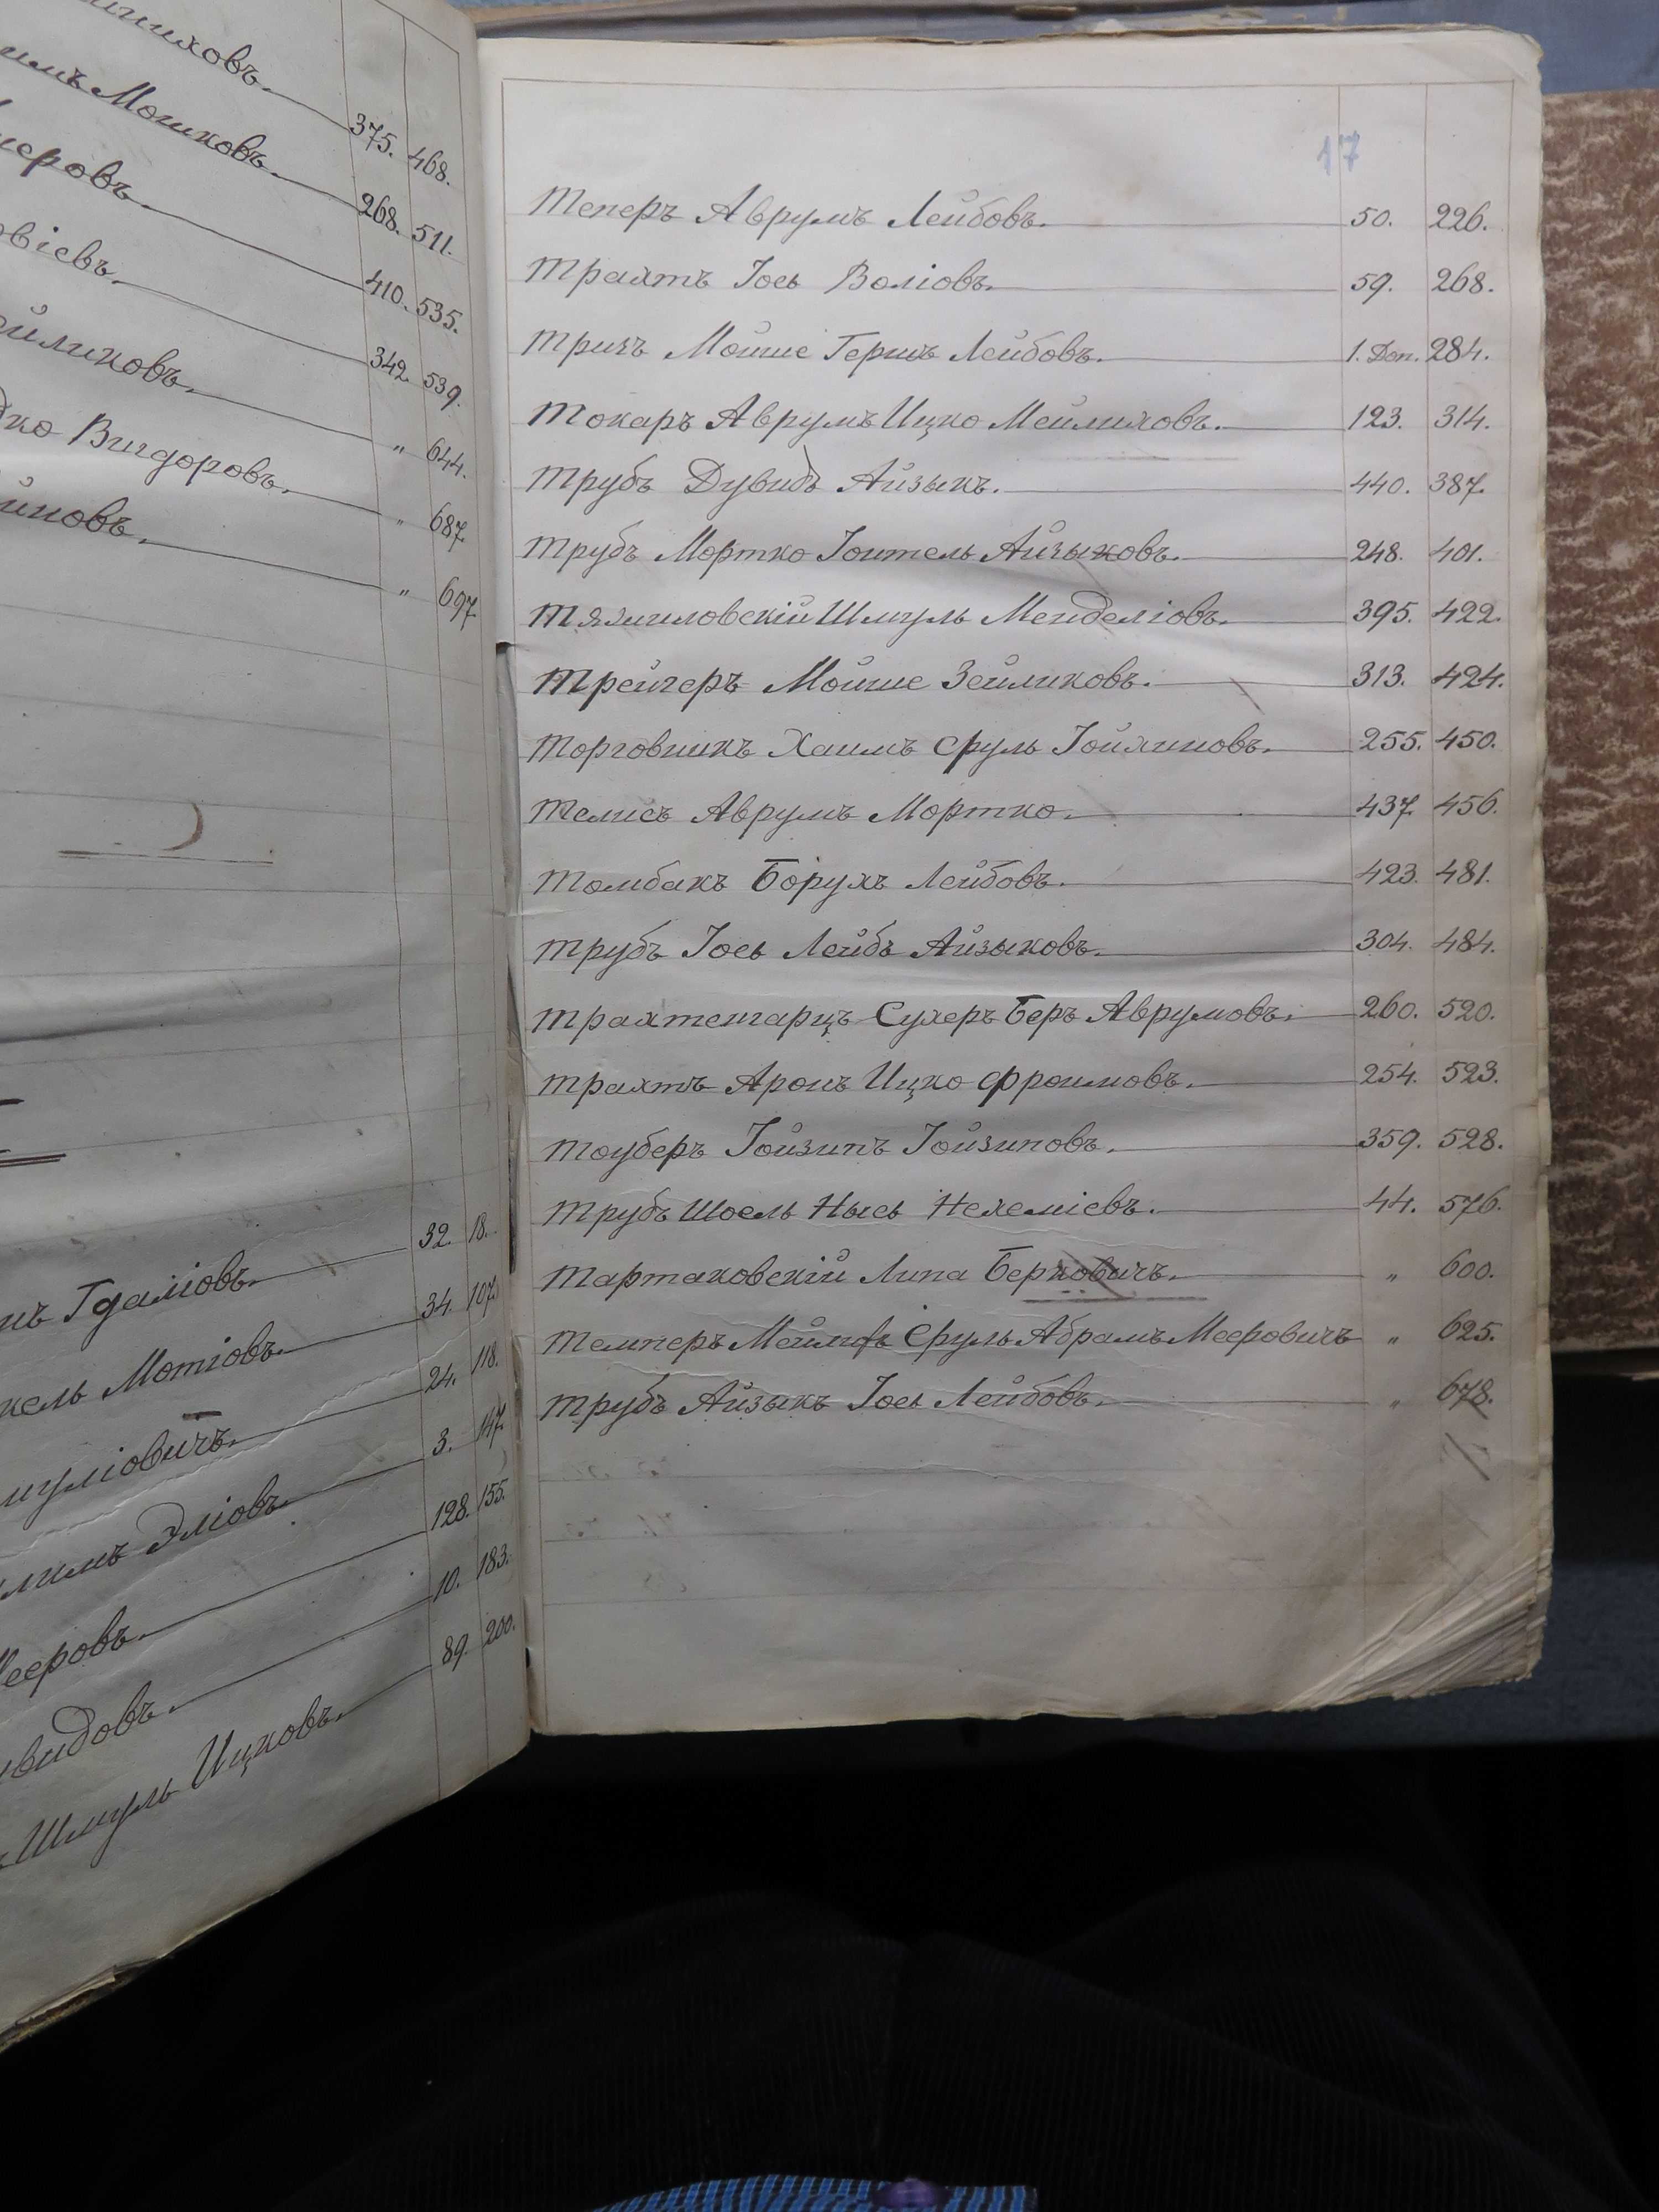 шиховъ. 375. 468.
имъ Мошковъ. 268. 511.
меровъ. 410. 535.
овіевъ. 342. 539.
йликовъ. " 644.
дко Вигдоровъ. " 687.
йновъ. " 697.
32. 18.
нъ Гдаліовъ. 34. 107.
кель Мотіовъ. 24. 118.
муліовичъ. 3. 147.
лимъ Эліовъ. 128. 155.
Мееровъ. 10. 183.
увидовъ. 89. 200.
Шмуль Ицковъ.
17
Теперъ Аврумъ Лейбовъ. 50. 226.
Трахтъ Іось Воліовъ. 59. 268.
Тричъ Мойше Гершъ Лейбовъ. 1. Доп. 284.
Токаръ Аврумъ Ицко Мейлиховъ. 123. 314.
Трубъ Дувидъ Айзыкъ. 440. 387.
Трубъ Мортко Іоитель Айзыковъ. 248. 401.
Тязмиловскій Шмуль Менделіовъ. 395. 422.
Трейгеръ Мойше Зейликовъ. 313. 424.
Торговникъ Хаимъ Сруль Іойхиновъ. 255. 450.
Телисъ Аврумъ Мортко. 437. 456.
Томбакъ Борухъ Лейбовъ. 423. 481.
Трубъ Іось Лейбъ Айзыковъ. 304. 484.
Трахтенгарцъ Сухеръ Беръ Аврумовъ. 260. 520.
Трахтъ Аронъ Ицко Фроимовъ. 254. 523.
Тоуберъ Іойзипъ Іойзиповъ. 359. 528.
Трубъ Шоель Нысь Нехеміевъ. 44. 576.
Тартаковскій Липа Берковичъ. " 600.
Темперъ Сруль Абрамъ Мееровичъ " 625.
Трубъ Айзыкъ Іось Лейбовъ. " 678.